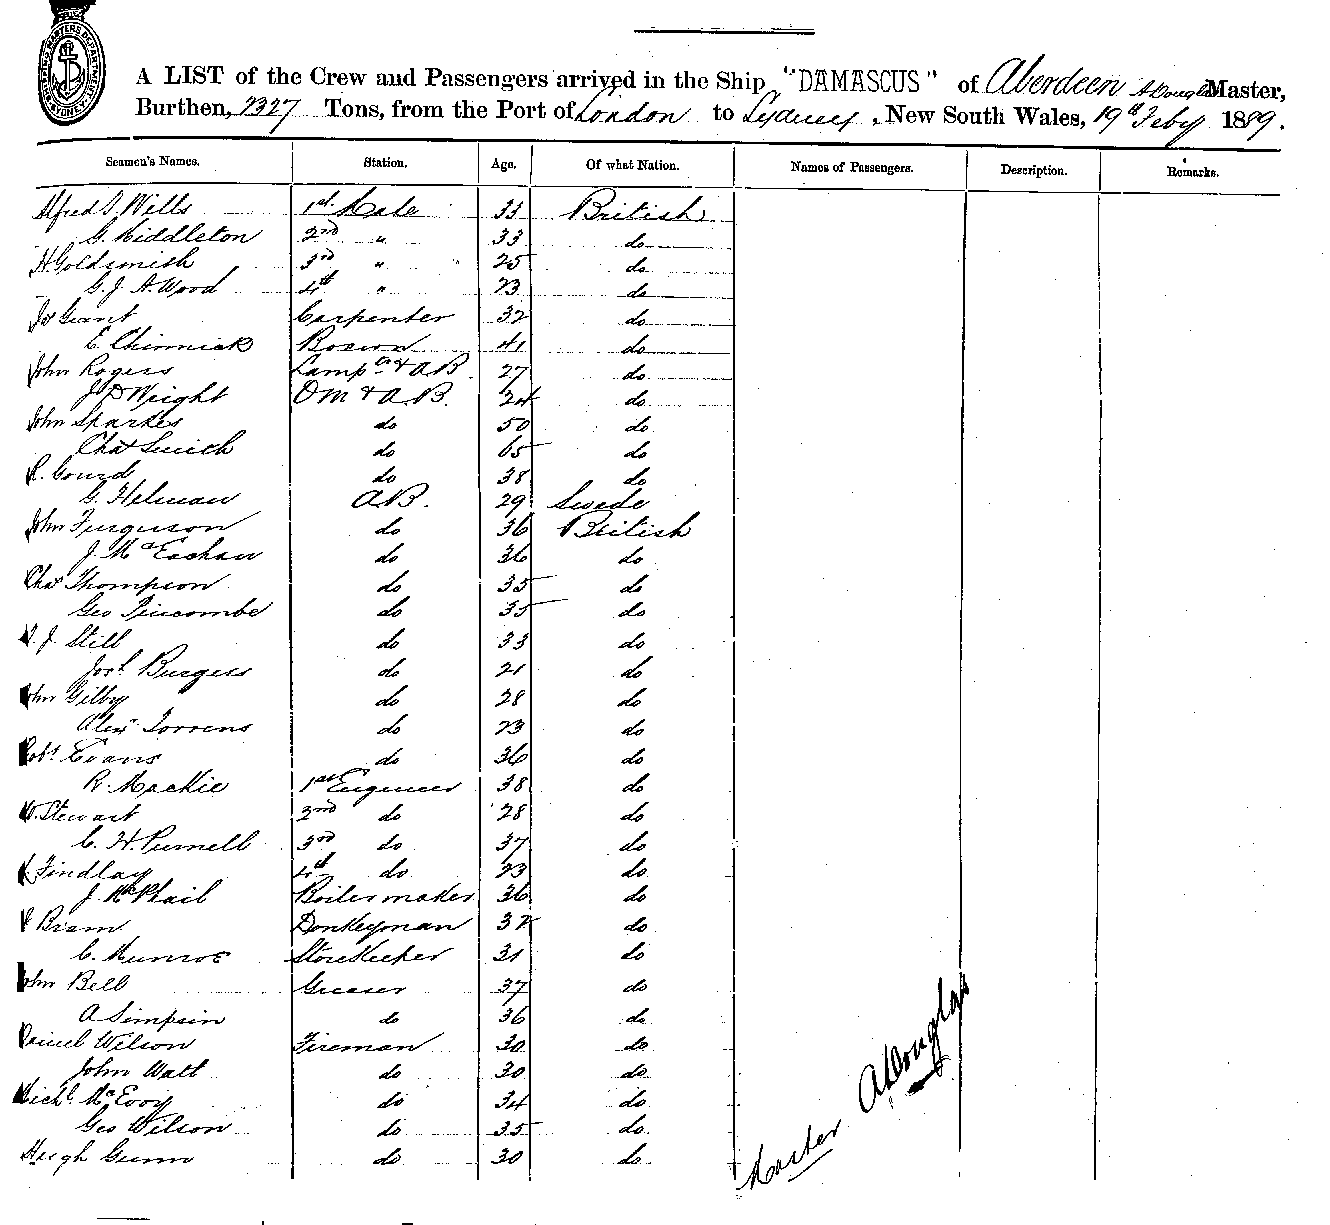 A LIST of the Crew and Passengers arrived in the Ship "DAMASCUS" of Aberdeen A Douglas Master,
Burthen, 2327 Tons, from the Port of London to Sydney, New South Wales, 19th Feby 1889.
Seamen's Names. Station. Age. Of what Nation. Names of Passengers. Description. Remarks.
Alfred S. Wills 1st Mate 33 British
G. Middleton 2nd " 33 do
H Goldsmith 3rd " 25 do
G. J. A. Wood 4th " 23 do
Grant Carpenter 32 do
E. Chinnick Bosun 41 do
John Rogers Lamp & AB. 27 do
J D Wright QM & AB. 24 do
John Sparkes do 50 do
Chas Smith do 65 do
R. Gourd do 38 do
G. Helman AB. 29 Swede
John Ferguson do 36 British
J. McEachan do 36 do
Chas Thompson do 35 do
Geo Pincombe do 35 do
J. Still do 33 do
Josh Burgess do 21 do
John Gilby do 28 do
Alex Torrens do 23 do
Robt Evans do 36 do
R. Mackie 1st Engineer 38 do
W. Stewart 2nd do 28 do
C. H. Purnell 3rd do 37 do
Findlay 4th do 23 do
J. McPhail Boilermaker 36 do
Donkeyman 32 do
C. Munroe Storekeeper 31 do
John Bell Greaser 37 do
A Simpson do 36 do
Daniel Wilson Fireman 30 do
John Watt do 30 do
Michl McEvoy do 34 do
Geo Wilson do 35 do
Hugh Gunn do 30 do
A Douglas
Master